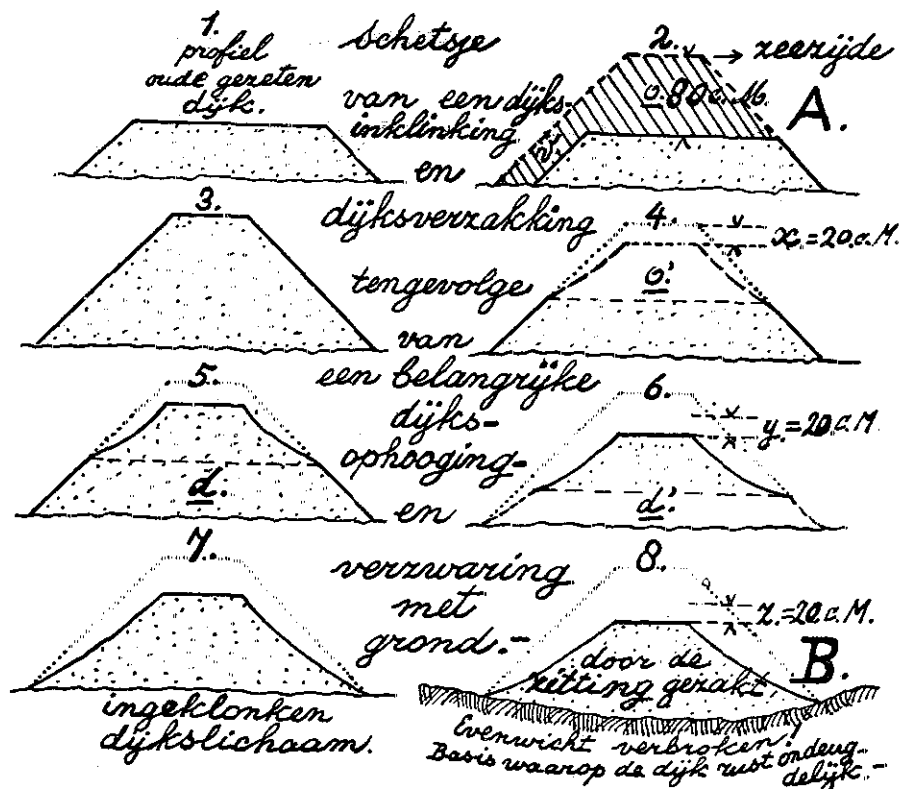 1.
profiel
oude gezeten
dijk.
schetsje
van een dijks-
inklinking
en
dijksverzakking
tengevolge
van
een belangrijke
dijks-
ophooging-
en
verzwaring
met
grond.-
2.
→ zeezijde
o. 80 c.M.
A.
3.
4.
x.=20.c.M.
o'.
5.
d.
6.
y.=20.c.M
d'.
7.
ingeklonken
dijkslichaam.
8.
z.=20 c.M.
B.
door de
zetting gezakt
Evenwicht verbroken!
Basis waarop de dijk rust ondeug-
delijk.-